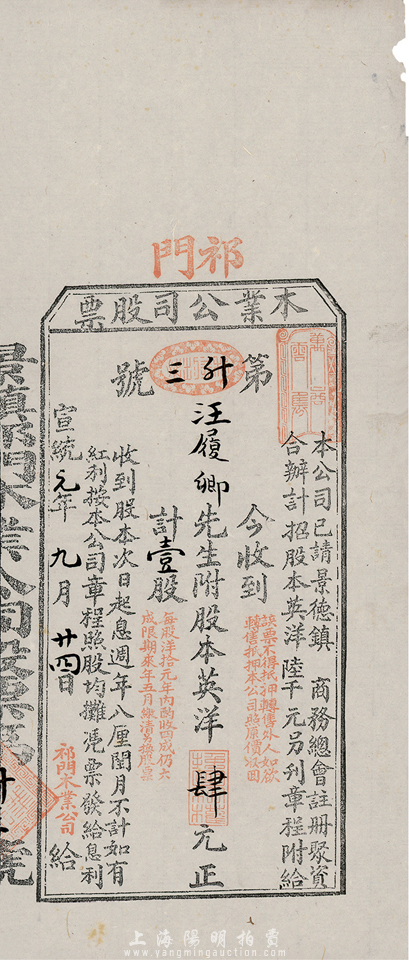 祁門
木業公司股票
本公司已請景德鎮 商務總會註冊聚資
合辦計招股本英洋陸千元另刊章程附給
第 號
三
今收到
該票不得抵押轉售外人如欲
轉售抵押本公司照原價收回
汪履卿先生附股本英洋肆元正
計壹股
每股洋拾元年內酌收四成仍六
成限期來年五月繳清另換股票
收到股本次日起息週年八厘閏月不計如有
紅利按本公司章程照股均攤憑票發給息利
宣統元年九月廿四日 給
祁門木業公司
景鎮祁門木業公司股票 號
上海陽明拍賣
www.yangmingauction.com